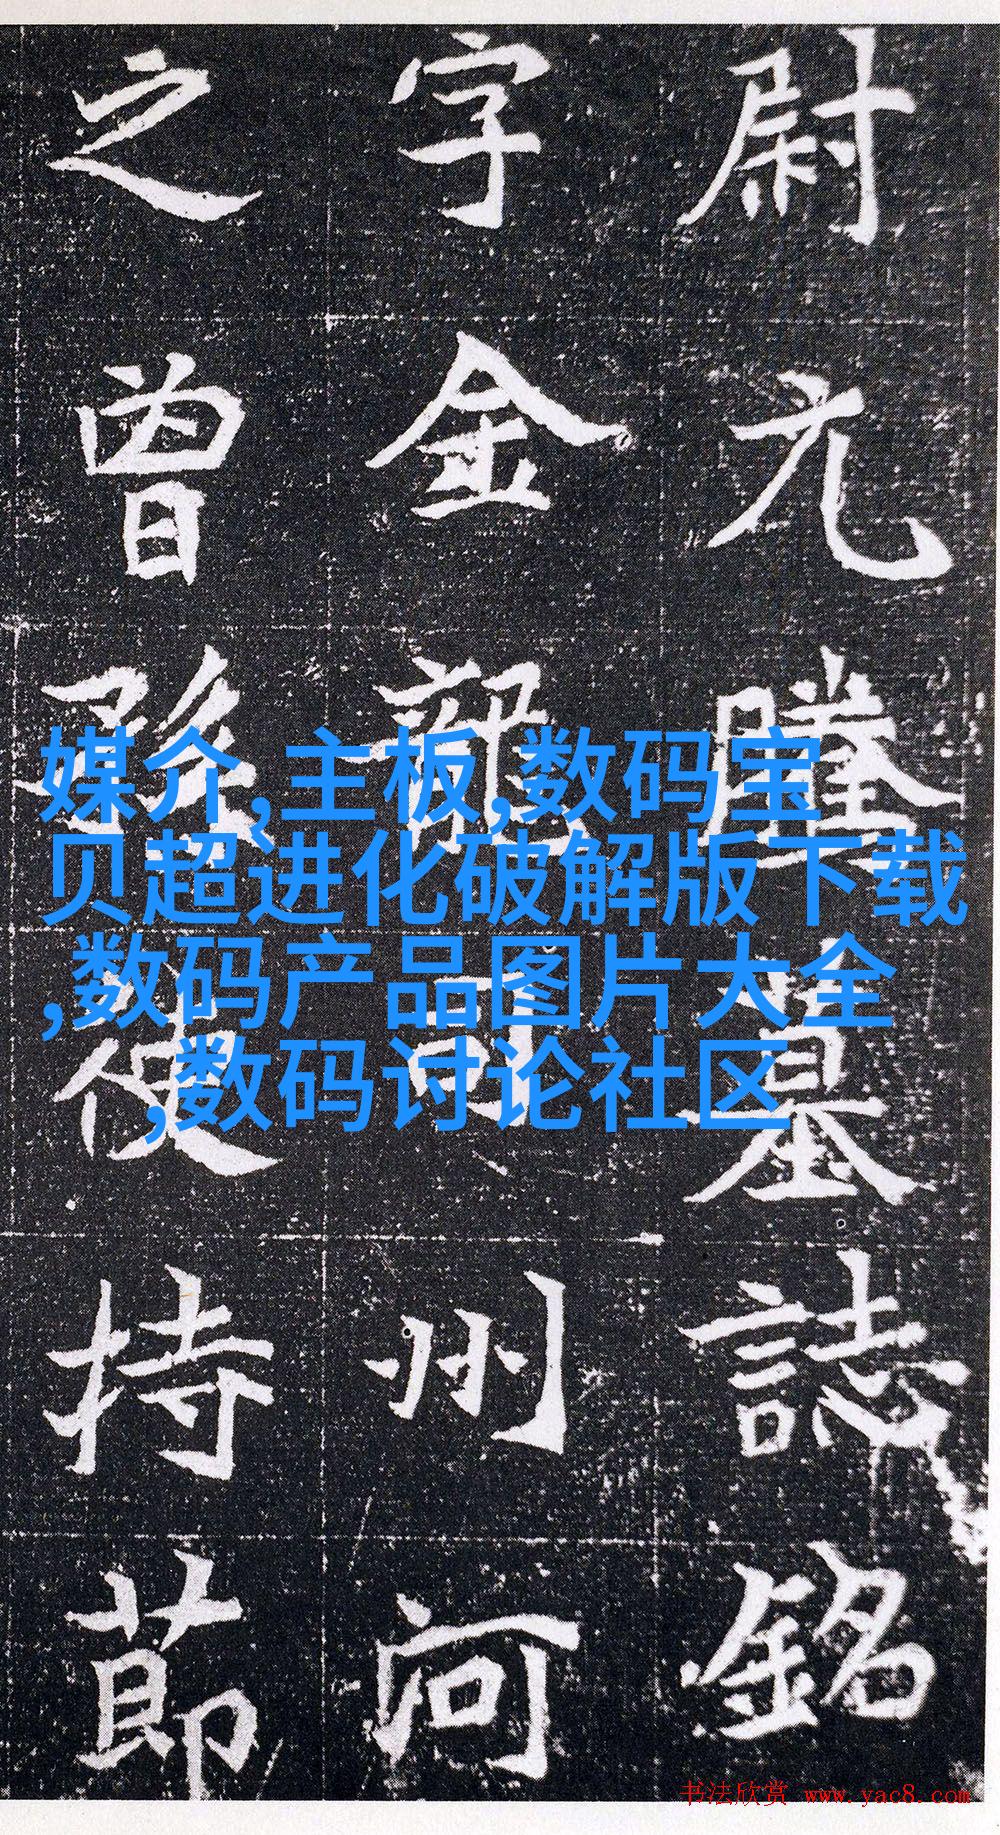 尉元騰墓誌銘
字金龍司州河
之曾孫使持節
媒介,主板,数码宝
贝超进化破解版下载
,数码产品图片大全
,数码讨论社区
书法欣赏 www.yac8.com